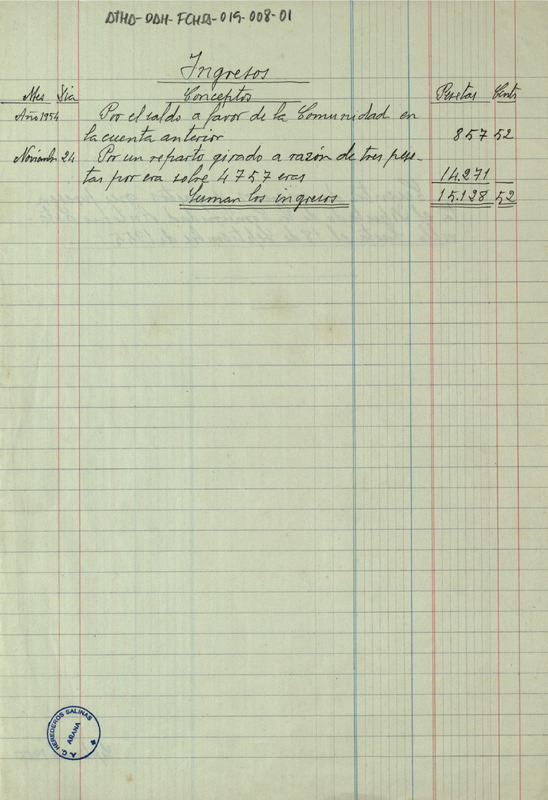 DTHD-DDH-FCHA-019-008-01
Ingresos
Mes Dia Conceptos Pesetas Cents
Año 1954 Por el saldo a favor de la Comunidad en
la cuenta anterior 857 52
Noviembre 24 Por un reparto girado a razón de tres pese-
tas por era sobre 4757 eras 14.271
Suman los ingresos 15.128 52
A. C. HEREDEROS SALINAS
AÑANA